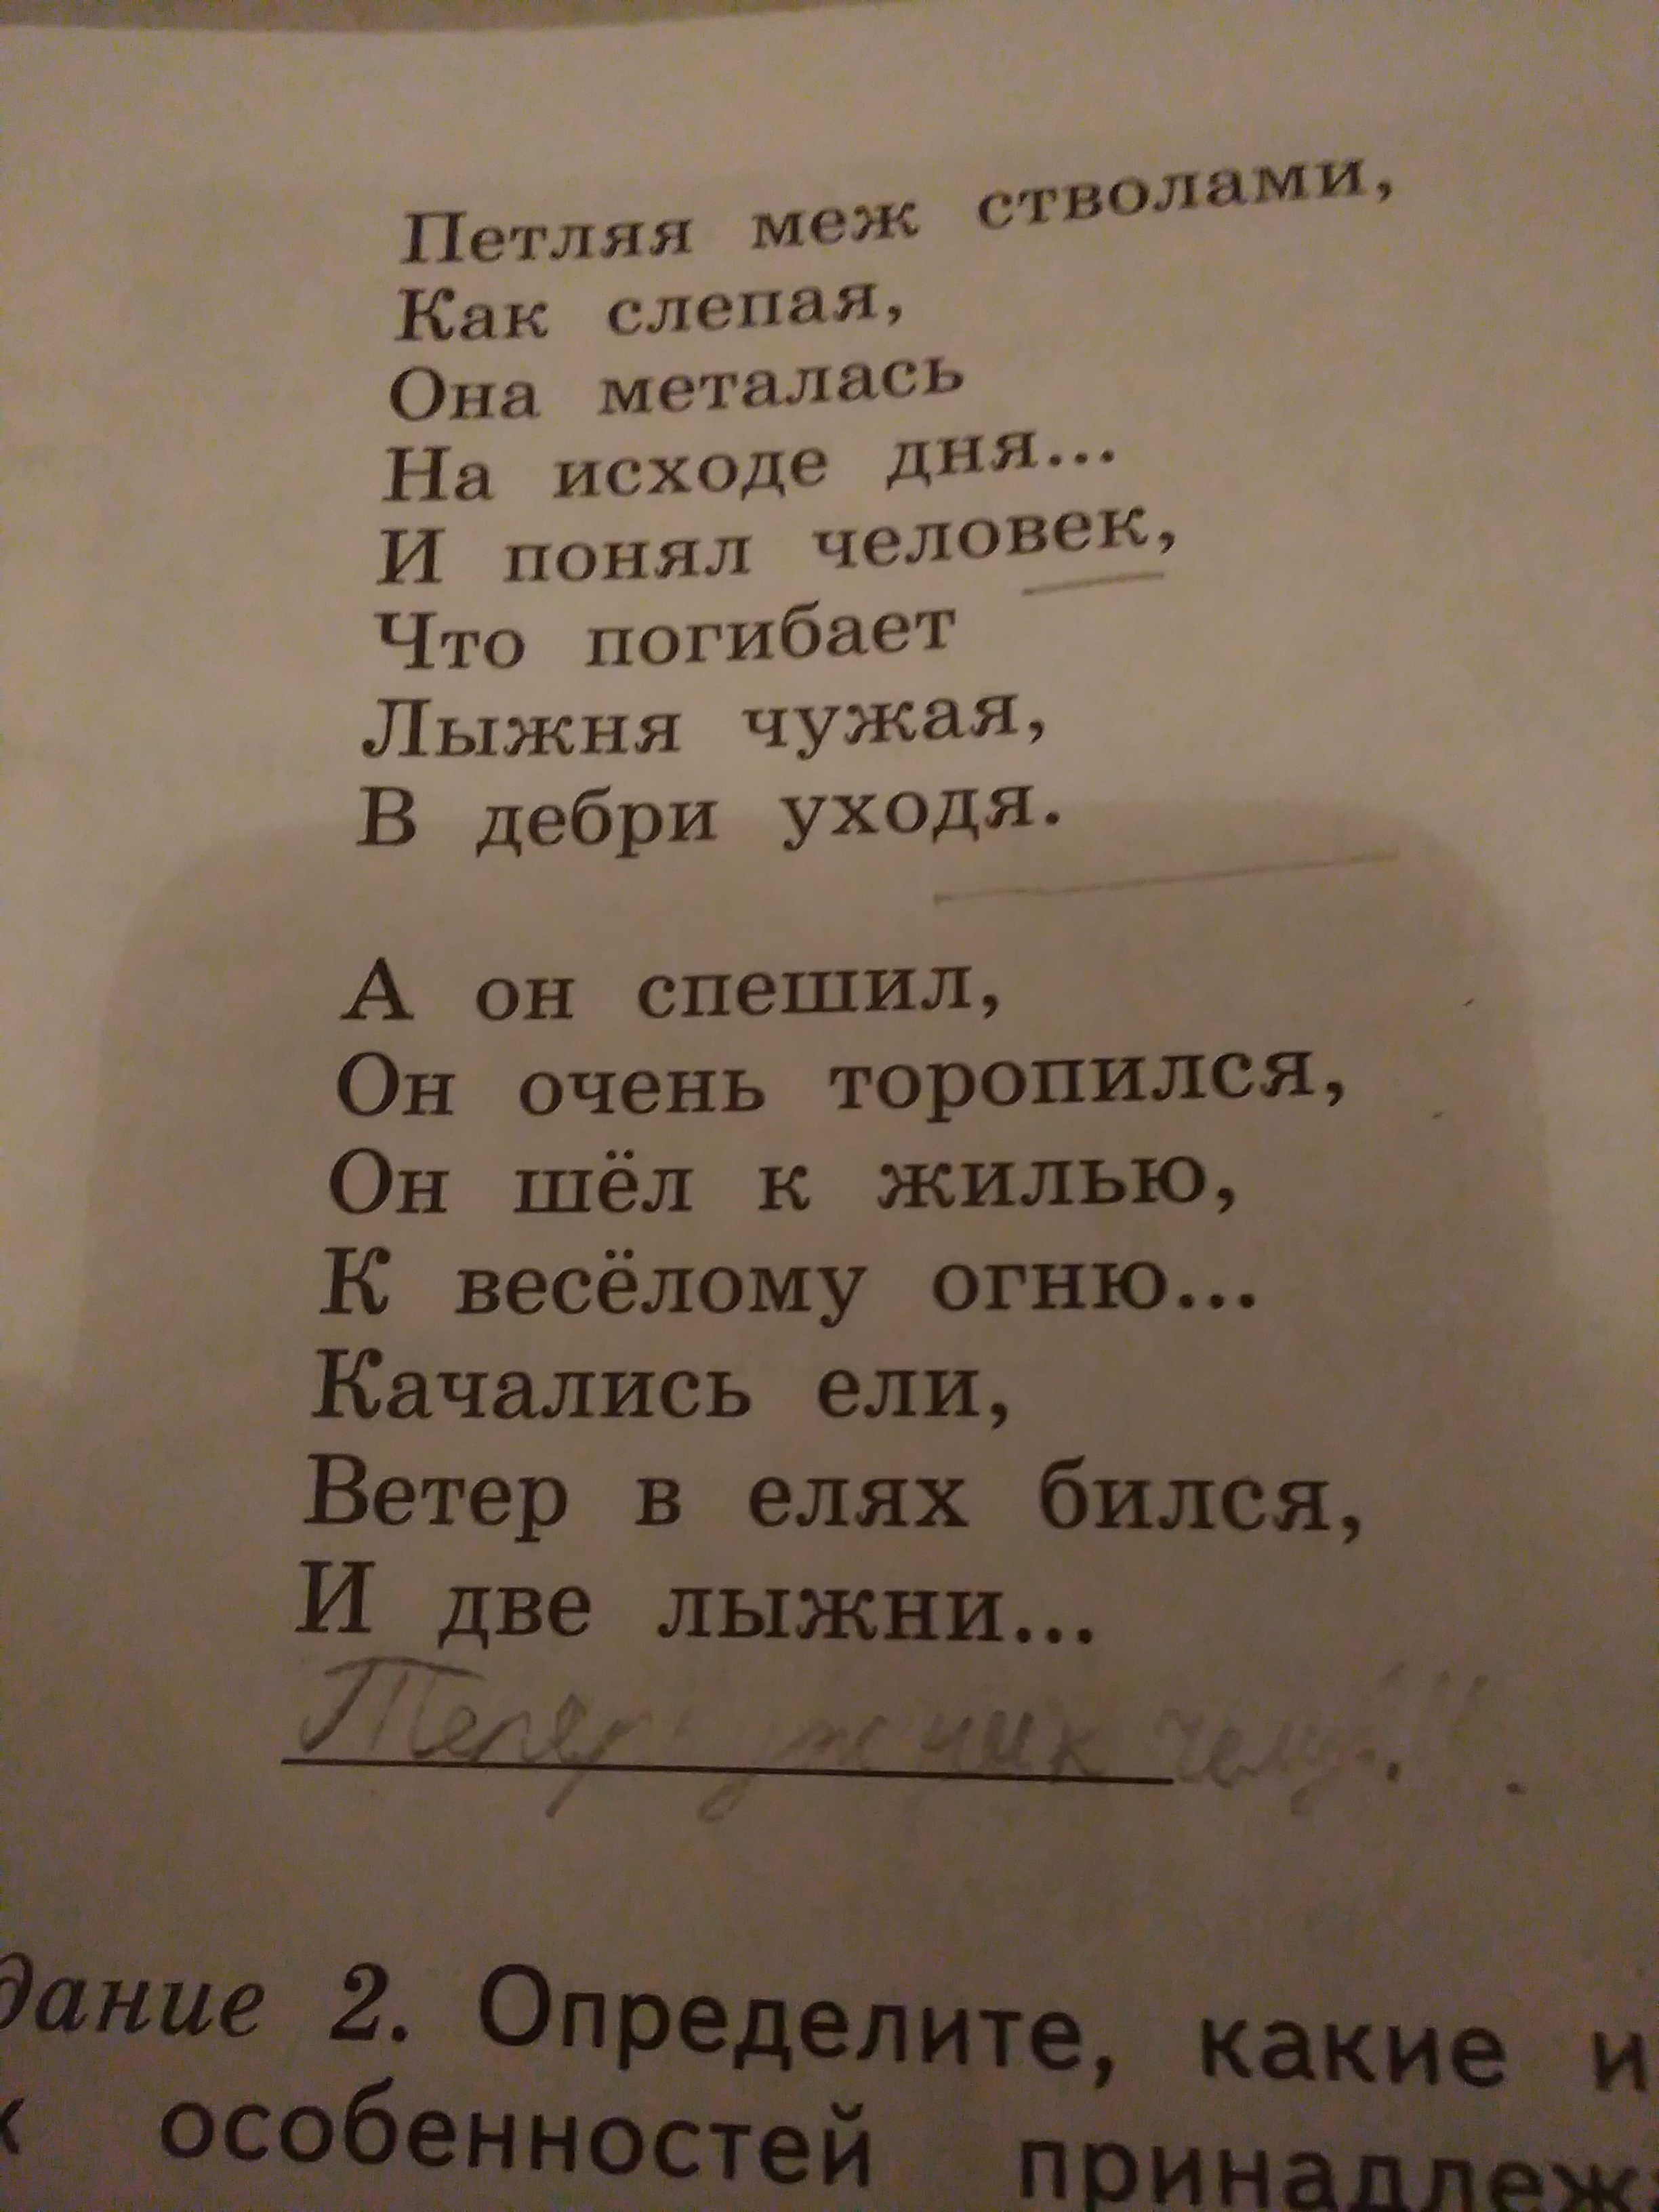 Петляя меж стволами,
Как слепая,
Она металась
На исходе дня...
И понял человек,
Что погибает
Лыжня чужая,
В дебри уходя.
А он спешил,
Он очень торопился,
Он шёл к жилью,
К весёлому огню...
Качались ели,
Ветер в елях бился,
И две лыжни...
ник чему!!!
дание 2. Определите, какие и
особенностей принадлеж